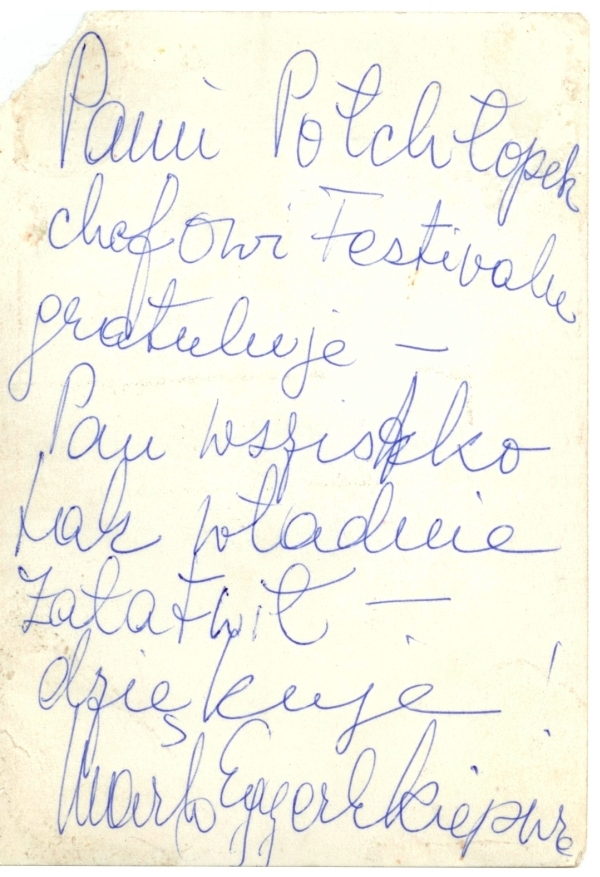 Panu Połchłopek
chefowi Festivalu
gratuluje —
Pan wszistko
tak
załatwił —
dziękuje !
Marta Eggerth Kiepura